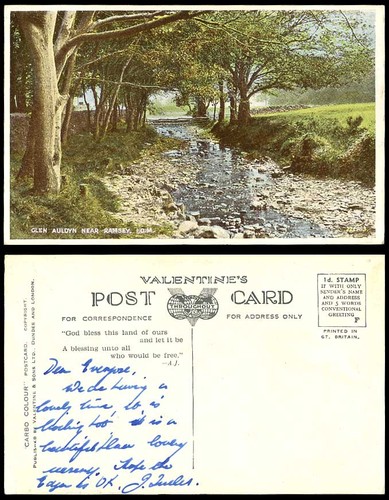 GLEN AULDYN NEAR RAMSEY, I.O.M.
VALENTINE'S
POST CARD
THROUGHOUT
FOR CORRESPONDENCE
FOR ADDRESS ONLY
1d. STAMP
IF WITH ONLY
SENDER'S NAME
AND ADDRESS
AND 5 WORDS
CONVENTIONAL
GREETING
P
PRINTED IN
GT. BRITAIN.
"God bless this land of ours
and let it be
A blessing unto all
who would be free."
—A.J.
"CARBO COLOUR" POSTCARD. COPYRIGHT.
PUBLISHED BY VALENTINE & SONS LTD., DUNDEE AND LONDON.
Dear
We are having a
lovely time, it is
too it is a
beautiful place lovely
Hope the
is O.K. J.